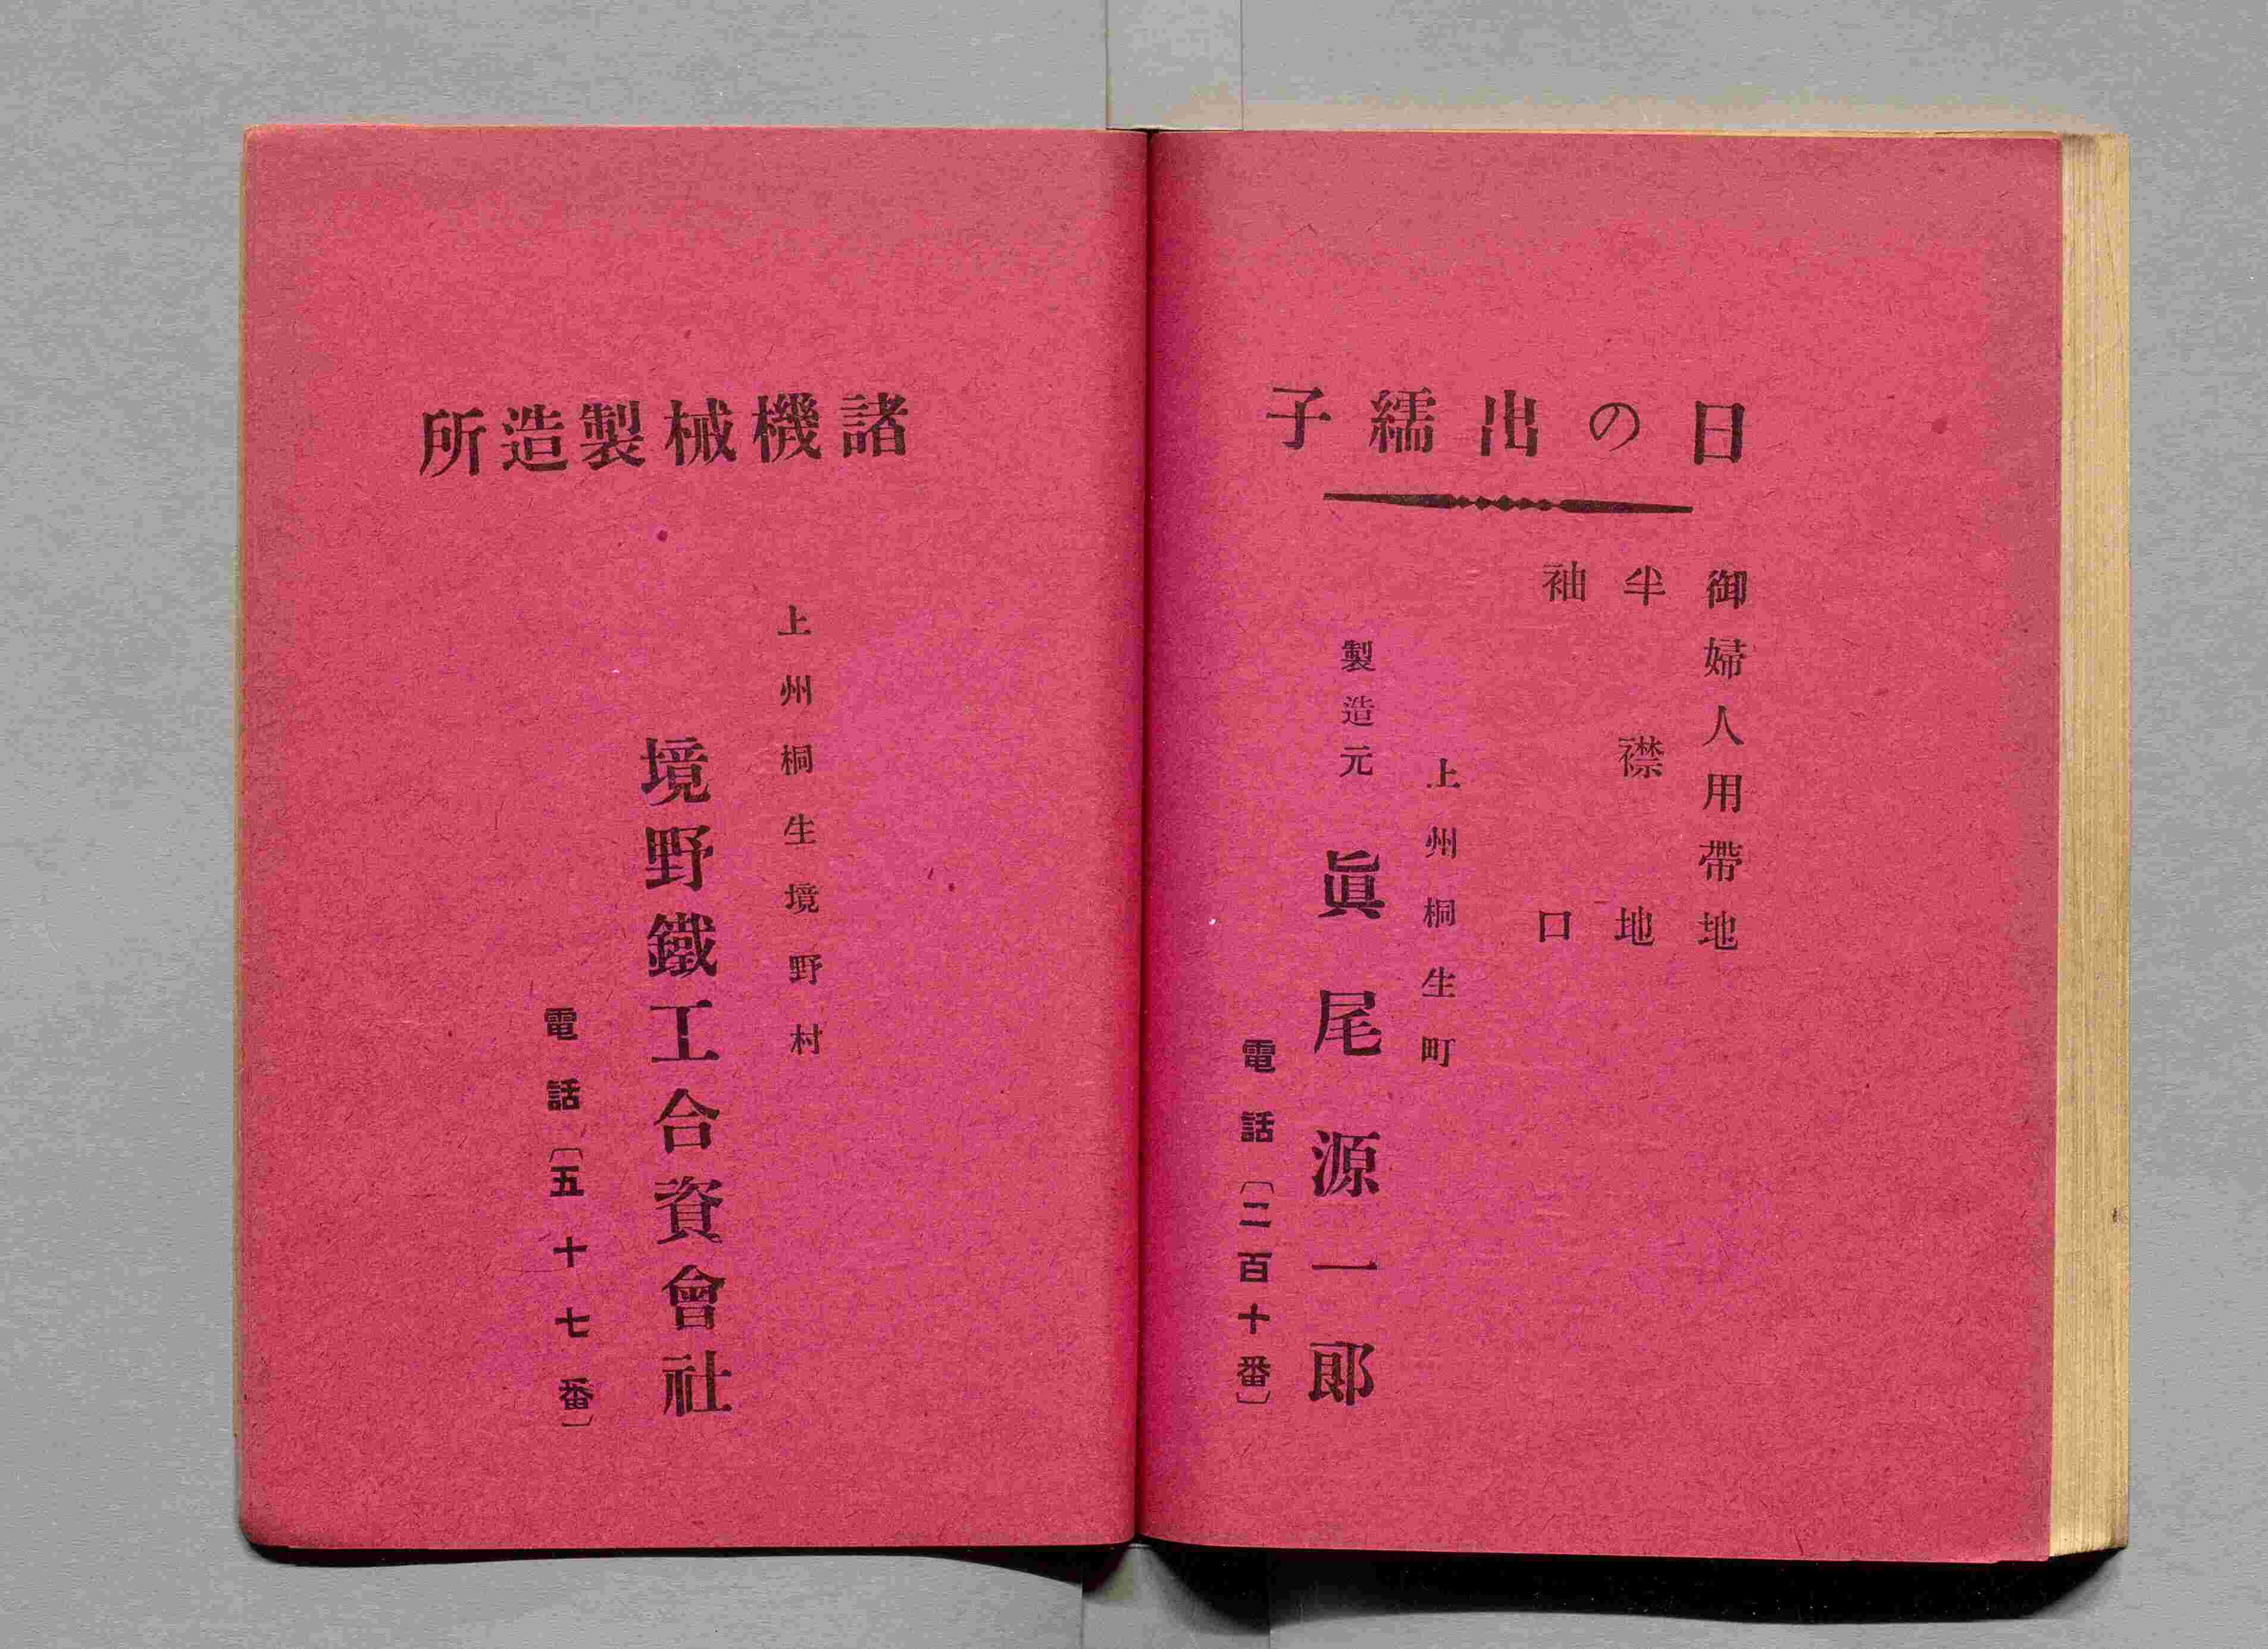 日の出繻子
御婦人用帶地
半襟地
袖口
上州桐生町
製造元 眞尾源一郎
電話〔二百十番〕
諸機械製造所
上州桐生境野村
境野鐵工合資會社
電話〔五十七番〕